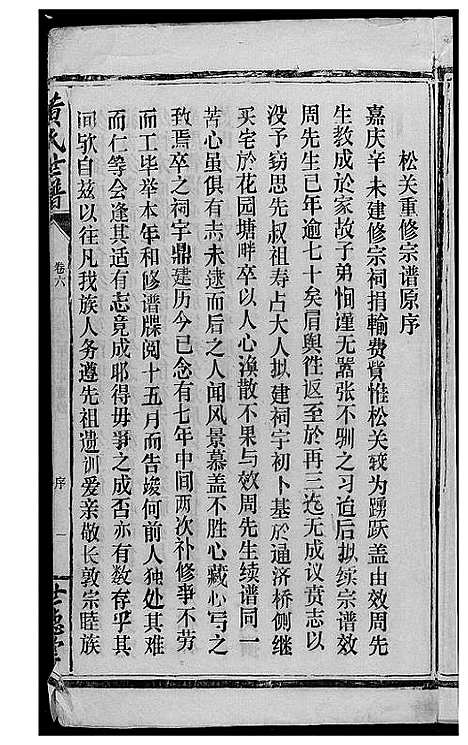 松关重修宗谱原序
嘉庆辛未建修宗祠捐输费赀惟松关较为踊跃盖由效周先
生教成於家故子弟恂谨无嚣张不驯之习迨后拟续宗谱效
周先生已年逾七十矣肩舆徃返至於再三迄无成议赍志以
没予窃思先叔祖寿占大人拟建祠宇初卜基於通济桥侧继
买宅於花园塘畔卒以人心涣散不果与效周先生续谱同一
苦心虽俱有志未逮而后之人闻风景慕盖不胜心藏心写之
致焉卒之祠宇鼎建历今已念有七年中间两次补修事不劳
而工毕举本年和修谱牒阅十五月而告竣何前人独处其难
而仁等会逢其适有志竟成耶得毋事之成否亦有数存乎其
间欤自兹以往凡我族人务遵先祖遗训爱亲敬长敦宗睦族
黄氏世谱
卷六
序
一
世德堂